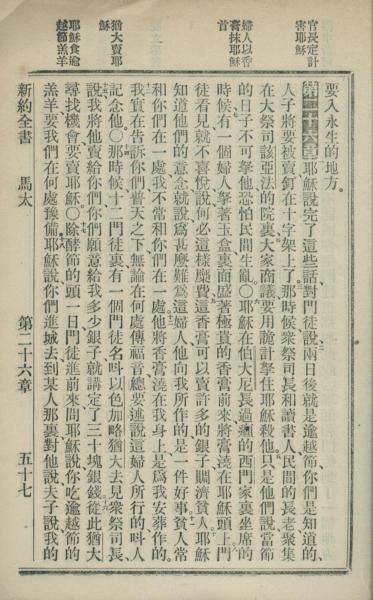 官長定計
害耶穌
婦人以香
膏抹耶穌
首
猶大賣耶
穌
耶穌食逾
越節羔羊
要入永生的地方。
第二十六章耶穌說完了這些話對門徒說兩日後就是逾越節你們是知道的、
人子將要被賣釘在十字架上了。那時候衆祭司長和讀書人民間的長老聚集
在大祭司該亞法的院裏大家商議要用詭計拏住耶穌殺他只是他們說當節
的日子不可拏他恐怕民間生亂〇耶穌在伯大尼長過癩的西門家裏坐席的
時候有一個婦人拏著玉盒裏面盛著極貴的香膏前來將膏澆在耶穌頭上門
徒看見就不喜悅說何必這樣糜費這香膏可以賣許多的銀子賙濟貧人耶穌
知道他們的意念就說爲甚麼難爲這婦人他向我所作的是一件好事貧人常
和你們在一處我不常和你們在一處他將香膏澆在我身上是爲我安葬作的。
我實在告訴你們普天之下無論在何處傳福音總要述說這婦人所行的呌人
記念他〇那時候十二門徒裏有一個門徒名呌以色加略猶大去見衆祭司長、
說我將他賣給你們你們願意給我多少銀子就講定了三十塊銀錢從此猶大
尋找機會要賣耶穌〇除酵節的頭一日門徒進前來問耶穌說你吃逾越節的
羔羊要我們在何處豫備耶穌說你們進城去到某人那裏對他說夫子說我的
新約全書　馬太　第二十六章　五十七